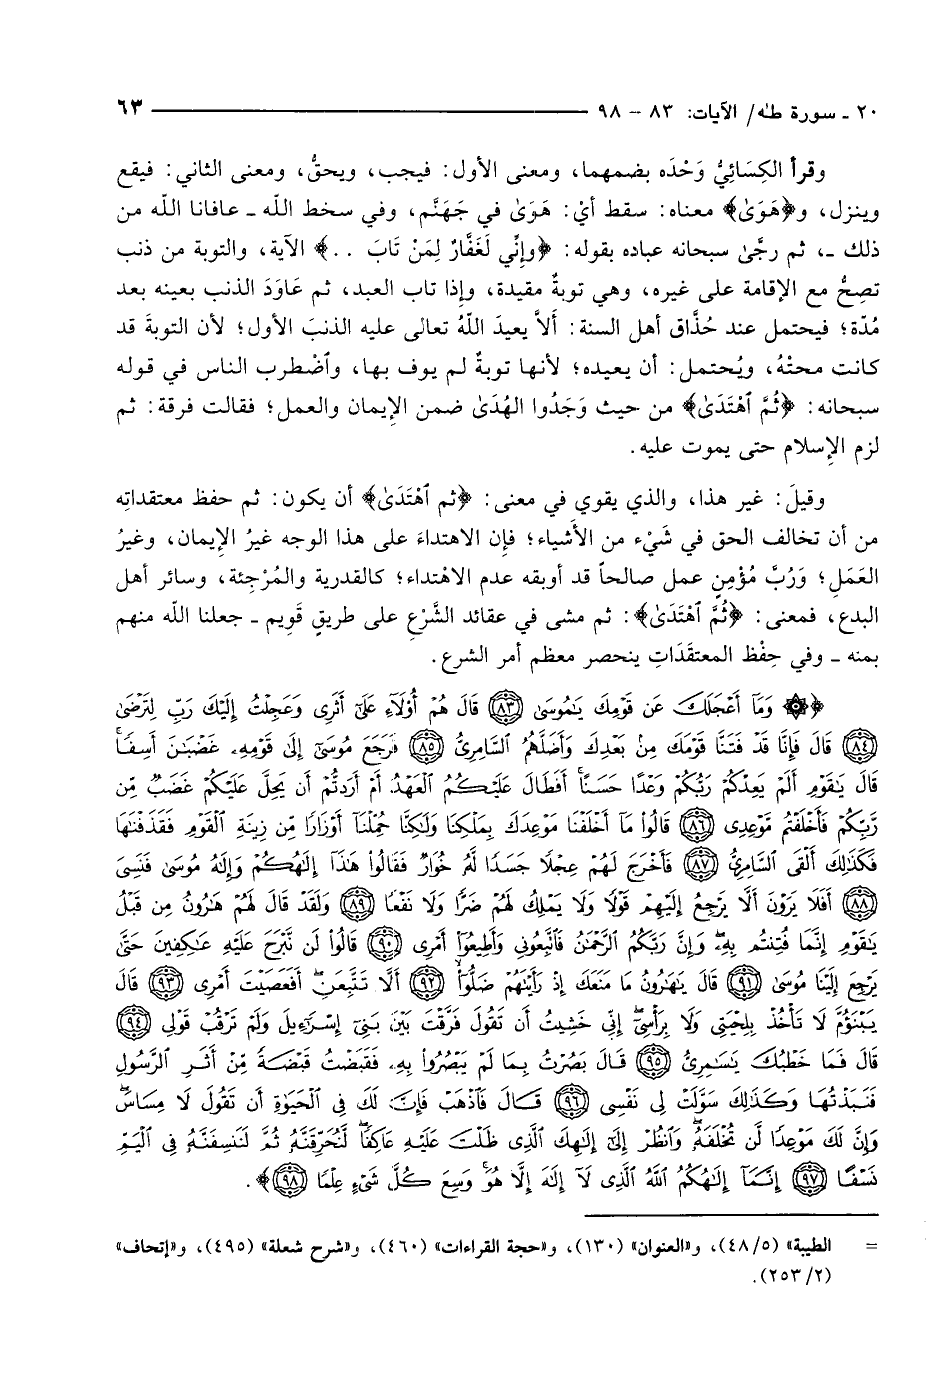 ٢٠ ـ سورة طه/ الآيات: ٨٣ – ٩٨ ٦٣
وقرأ الكِسَائِيُّ وَحْدَه بضمهما، ومعنى الأول: فيجب، ويحقُّ، ومعنى الثاني: فيقع
وينزل، و﴿هَوَىٰ﴾ معناه: سقط أيْ: هَوَىٰ في جَهَنَّم، وفي سخط الله ـ عافانا الله من
ذلك ـ، ثم رجَّىٰ سبحانه عباده بقوله: ﴿وإنِّي لَغَفَّارٌ لِمَنْ تَابَ . .﴾ الآية، والتوبة من ذنب
تصِحُّ مع الإقامة على غيره، وهي توبةٌ مقيدة، وإذا تاب العبد، ثم عَاوَدَ الذنب بعينه بعد
مُدّة؛ فيحتمل عند حُذَّاق أهل السنة: أَلاَّ يعيدَ اللهُ تعالى عليه الذنبَ الأول؛ لأن التوبةَ قد
كانت محتْهُ، ويُحتمل: أن يعيده؛ لأنها توبةٌ لم يوف بها، وٱضْطرب الناس في قوله
سبحانه: ﴿ثُمَّ ٱهْتَدَىٰ﴾ من حيث وَجَدُوا الهُدَىٰ ضمن الإيمان والعمل؛ فقالت فرقة: ثم
لزم الإسلام حتى يموت عليه.
وقيلَ: غير هذا، والذي يقوي في معنى: ﴿ثم ٱهْتَدَىٰ﴾ أن يكون: ثم حفظ معتقداتِه
من أن تخالف الحق في شَيْء من الأشياء؛ فإن الاهتداءَ على هذا الوجه غيرُ الإيمان، وغيرُ
العَمَلِ؛ وَرُبَّ مُؤْمِنٍ عمل صالحاً قد أوبقه عدم الاهتداء؛ كالقدرية والمُرْجِئة، وسائر أهل
البدع، فمعنى: ﴿ثُمَّ ٱهْتَدَىٰ﴾: ثم مشى في عقائد الشَّرْعِ على طريقٍ قَوِيم ـ جعلنا الله منهم
بمنه ـ وفي حِفْظ المعتقَدَاتِ ينحصر معظم أمر الشرع.
﴿۞ وَمَآ أَعْجَلَكَ عَن قَوْمِكَ يَٰمُوسَىٰ ﴿٨٣﴾ قَالَ هُمْ أُوْلَآءِ عَلَىٰٓ أَثَرِى وَعَجِلْتُ إِلَيْكَ رَبِّ لِتَرْضَىٰ
﴿٨٤﴾ قَالَ فَإِنَّا قَدْ فَتَنَّا قَوْمَكَ مِنۢ بَعْدِكَ وَأَضَلَّهُمُ ٱلسَّامِرِىُّ ﴿٨٥﴾ فَرَجَعَ مُوسَىٰٓ إِلَىٰ قَوْمِهِۦ غَضْبَٰنَ أَسِفًا ۚ
قَالَ يَٰقَوْمِ أَلَمْ يَعِدْكُمْ رَبُّكُمْ وَعْدًا حَسَنًا ۚ أَفَطَالَ عَلَيْكُمُ ٱلْعَهْدُ أَمْ أَرَدتُّمْ أَن يَحِلَّ عَلَيْكُمْ غَضَبٌ مِّن
رَّبِّكُمْ فَأَخْلَفْتُم مَّوْعِدِى ﴿٨٦﴾ قَالُوا۟ مَآ أَخْلَفْنَا مَوْعِدَكَ بِمَلْكِنَا وَلَٰكِنَّا حُمِّلْنَآ أَوْزَارًا مِّن زِينَةِ ٱلْقَوْمِ فَقَذَفْنَٰهَا
فَكَذَٰلِكَ أَلْقَى ٱلسَّامِرِىُّ ﴿٨٧﴾ فَأَخْرَجَ لَهُمْ عِجْلًا جَسَدًا لَّهُۥ خُوَارٌ فَقَالُوا۟ هَٰذَآ إِلَٰهُكُمْ وَإِلَٰهُ مُوسَىٰ فَنَسِىَ
﴿٨٨﴾ أَفَلَا يَرَوْنَ أَلَّا يَرْجِعُ إِلَيْهِمْ قَوْلًا وَلَا يَمْلِكُ لَهُمْ ضَرًّا وَلَا نَفْعًا ﴿٨٩﴾ وَلَقَدْ قَالَ لَهُمْ هَٰرُونُ مِن قَبْلُ
يَٰقَوْمِ إِنَّمَا فُتِنتُم بِهِۦ ۖ وَإِنَّ رَبَّكُمُ ٱلرَّحْمَٰنُ فَٱتَّبِعُونِى وَأَطِيعُوٓا۟ أَمْرِى ﴿٩٠﴾ قَالُوا۟ لَن نَّبْرَحَ عَلَيْهِ عَٰكِفِينَ حَتَّىٰ
يَرْجِعَ إِلَيْنَا مُوسَىٰ ﴿٩١﴾ قَالَ يَٰهَٰرُونُ مَا مَنَعَكَ إِذْ رَأَيْتَهُمْ ضَلُّوٓا۟ ﴿٩٢﴾ أَلَّا تَتَّبِعَنِ ۖ أَفَعَصَيْتَ أَمْرِى ﴿٩٣﴾ قَالَ
يَبْنَؤُمَّ لَا تَأْخُذْ بِلِحْيَتِى وَلَا بِرَأْسِىٓ ۖ إِنِّى خَشِيتُ أَن تَقُولَ فَرَّقْتَ بَيْنَ بَنِىٓ إِسْرَٰٓءِيلَ وَلَمْ تَرْقُبْ قَوْلِى ﴿٩٤﴾
قَالَ فَمَا خَطْبُكَ يَٰسَٰمِرِىُّ ﴿٩٥﴾ قَالَ بَصُرْتُ بِمَا لَمْ يَبْصُرُوا۟ بِهِۦ فَقَبَضْتُ قَبْضَةً مِّنْ أَثَرِ ٱلرَّسُولِ
فَنَبَذْتُهَا وَكَذَٰلِكَ سَوَّلَتْ لِى نَفْسِى ﴿٩٦﴾ قَالَ فَٱذْهَبْ فَإِنَّ لَكَ فِى ٱلْحَيَوٰةِ أَن تَقُولَ لَا مِسَاسَ ۖ
وَإِنَّ لَكَ مَوْعِدًا لَّن تُخْلَفَهُۥ ۖ وَٱنظُرْ إِلَىٰٓ إِلَٰهِكَ ٱلَّذِى ظَلْتَ عَلَيْهِ عَاكِفًا ۖ لَّنُحَرِّقَنَّهُۥ ثُمَّ لَنَنسِفَنَّهُۥ فِى ٱلْيَمِّ
نَسْفًا ﴿٩٧﴾ إِنَّمَآ إِلَٰهُكُمُ ٱللَّهُ ٱلَّذِى لَآ إِلَٰهَ إِلَّا هُوَ ۚ وَسِعَ كُلَّ شَىْءٍ عِلْمًا ﴿٩٨﴾﴾.
= الطيبة» (٤٨/٥)، و«العنوان» (١٣٠)، و«حجة القراءات» (٤٦٠)، و«شرح شعلة» (٤٩٥)، و«إتحاف»
(٢٥٣/٢).